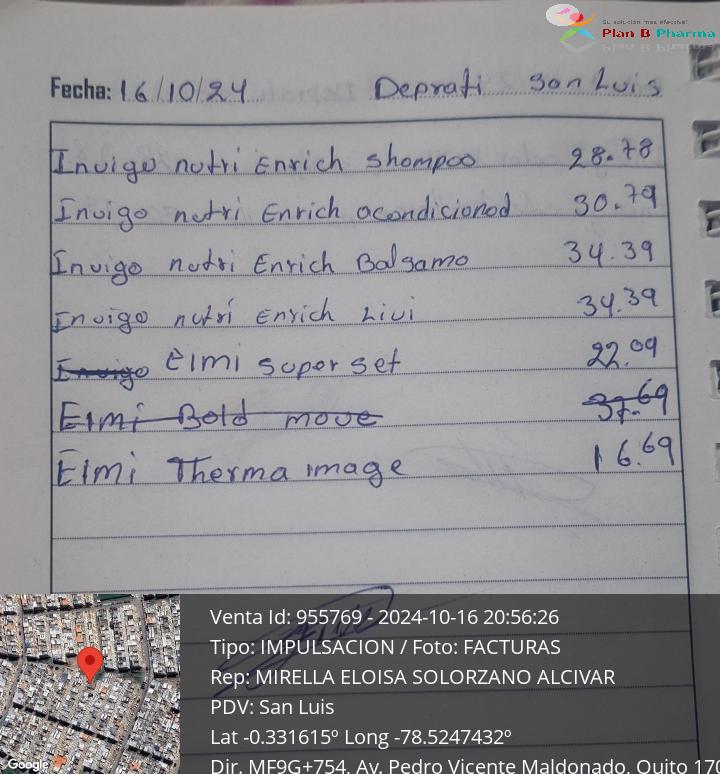 Su solucion mas efectiva!
Plan B Pharma
Fecha: 16/10/24 Deprati San Luis
Invigo nutri Enrich shampoo 28.78
Invigo nutri Enrich acondicionad 30.79
Invigo nutri Enrich Balsamo 34.39
Invigo nutri Enrich Livi 34.39
Invigo EImi super set 22.09
EImi Bold move 37.69
EImi Therma image 16.69
Venta Id: 955769 - 2024-10-16 20:56:26
Tipo: IMPULSACION / Foto: FACTURAS
Rep: MIRELLA ELOISA SOLORZANO ALCIVAR
PDV: San Luis
Lat -0.331615º Long -78.5247432º
Dir. MF9G+754, Av. Pedro Vicente Maldonado, Quito 170
Google